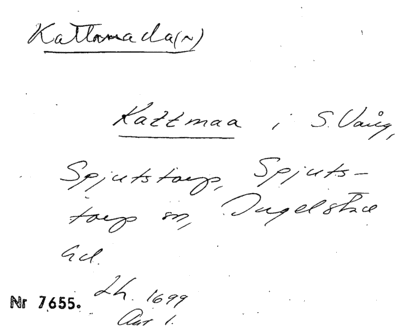 Kattmada(n)
Kattmaa i S. Vång,
Spjutstorp, Spjuts-
torp sn, Ingelstad
hd.
Lh. 1699
Nr 7655.